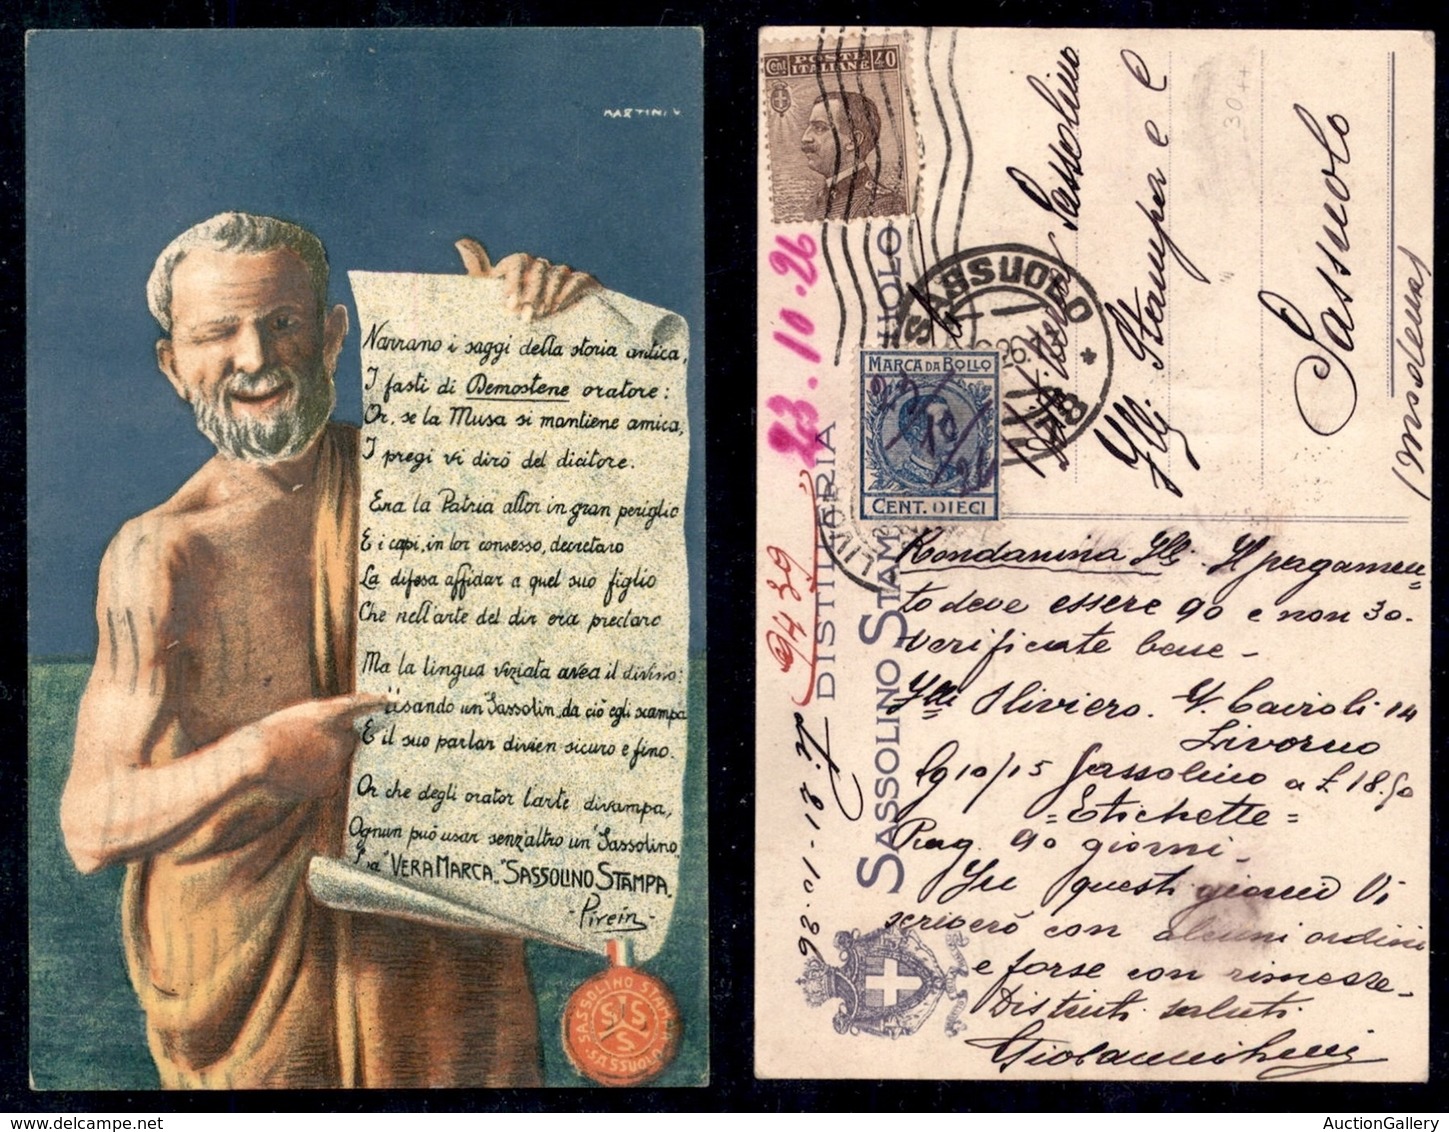 MARTINI V.
Narrano i saggi della storia antica,
I fasti di Demostene oratore:
Or, se la Musa si mantiene amica,
I pregi vi dirò del dicitore.
Era la Patria allor in gran periglio
E i capi, in lor consesso, decretaro
La difesa affidar a quel suo figlio
Che nell'arte del dir era preclaro
Ma la lingua viziata avea il divino:
Usando un "Sassolin, da ciò egli scampa
E il suo parlar divien sicuro e fino.
Or che degli orator l'arte divampa,
Ognun può usar senz'altro un "Sassolino„
"VERA MARCA„ "SASSOLINO STAMPA
- Pirein -
SASSOLINO STAMPA SASSUOLO
SSS
Cent. POSTE ITALIANE 40
23.10.26
9439
21.10.26
DISTILLERIA
SASSOLINO STAMPA SASSUOLO
SASSUOLO
MARCA DA BOLLO
23/10/26
CENT. DIECI
30
Sassolino
Flli Stampa e C
Sassuolo
(Modena)
Rondanina Flli. Il pagamen=
to deve essere 90 e non 30.
verificate bene -
Flli Oliviero. V. Cairoli 14
Livorno
Kg 10/15 Sassolino a £ 18.50
= Etichette =
Pag. 90 giorni -
In questi giorni Vi
scriverò con alcuni ordini
e forse con rimesse -
Distinti saluti
AuctionGallery